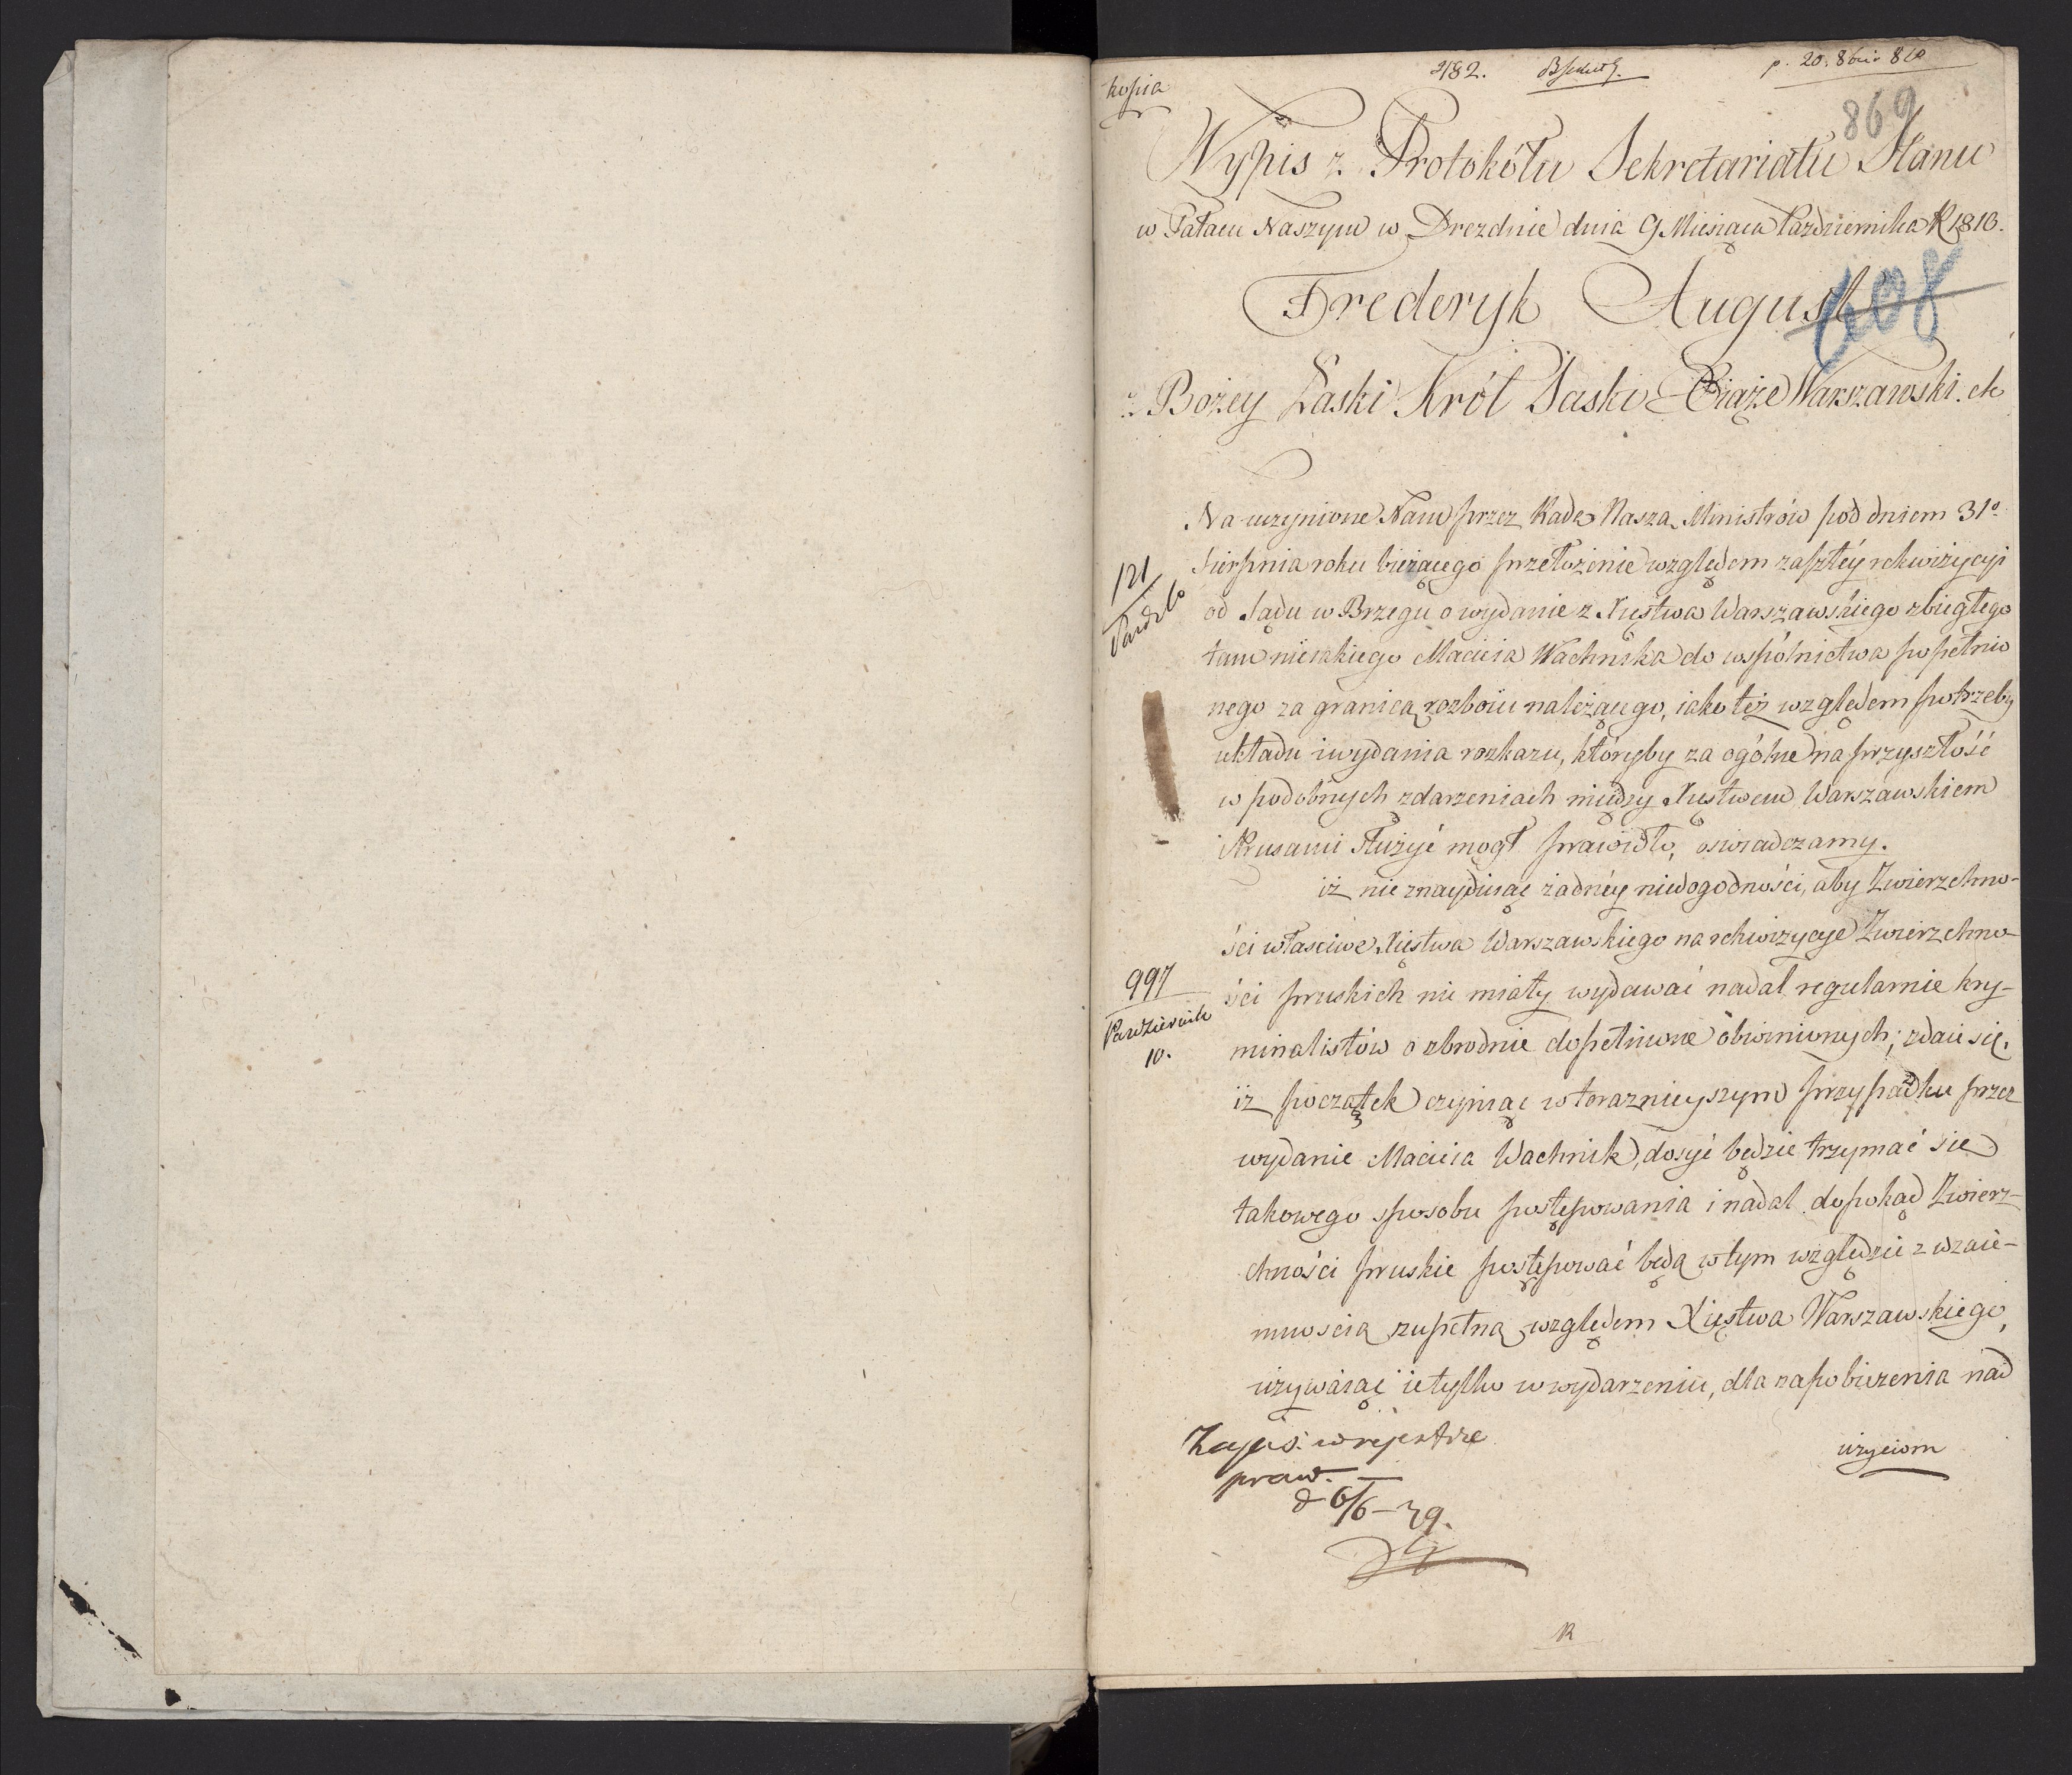 kopia
2182.
p. 20. 8bris 810
869
Wypis z Protokółu Sekretariatu Stanu
w Pałacu Naszym w Dreznie dnia 9 Miesiąca Października R 1810.
Frederyk August
608
z Bożey Łaski Król Saski Xiąże Warszawski. etc
Na uczynione Nam przez Radę Naszą Ministrów pod dniem 31o
Sierpnia roku bieżącego przełożenie względem zaszłéy rekwizycyi
121
od Sądu w Brzegu o wydanie z Xięstwa Warszawskiego zbiegłego
tam nieiakiego Macieia Wachnika do wspólnictwa popełnio
nego za granicą rozboiu należącego, iako też względem potrzeby
układu i wydania rozkazu, któryby za ogólne na przyszłość
w podobnych zdarzeniach między Xięstwem Warszawskiem
i Prusami służyć mogł prawidło, oswiadczamy.
iż nie znayduiąc żadnéy niedogodności, aby Zwierzchno-
ści własciwe Xięstwa Warszawskiego na rekwizycye Zwierzchno-
997
Pazdziernik
10.
ści pruskich nie miały wydawać nadal regularnie kry-
minalistów o zbrodnie dopełnione obwinionych; zdaie się,
iż początek czyniąc w teraznieyszym przypadku przez
wydanie Macieia Wachnik, dosyć będzie trzymać się
takowego sposobu postępowania i nadal dopokąd Zwierz-
chności pruskie postępować będą w tym względzie z wzaie-
mnoscią zupełną względem Xięstwa Warszawskiego,
używaiąc ie tylko w wydarzeniu, dla zapobieżenia nad
użyciom
Zapis. w rejestrze
praw.
d 6/6 - 39.
R